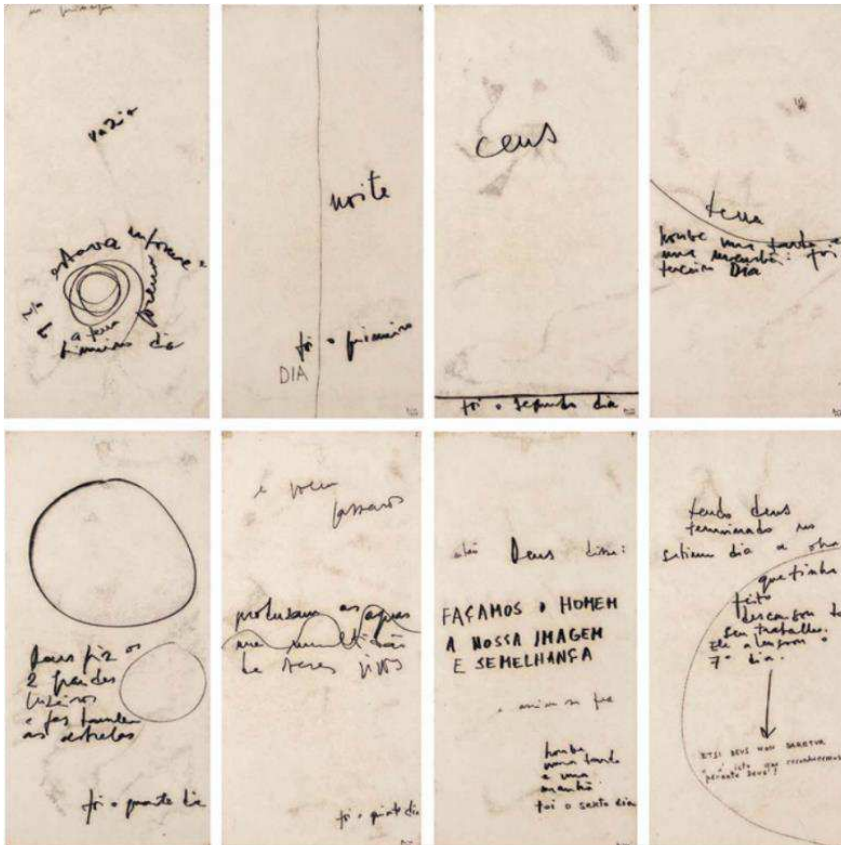 no princípio
vazia
estava informe e
a terra
primeiro dia
noite
foi o primeiro
DIA
ceus
foi o segundo dia
terra
houve uma tarde e
uma manhã: foi
terceiro DIA
Deus fiz os
2 grandes
luzeiros
e fez também
as estrelas
foi o quarto dia
e voem
passaros
produzam as aguas
uma multidão
de seres vivos
foi o quinto dia
então Deus disse:
FAÇAMOS O HOMEM
A NOSSA IMAGEM
E SEMELHANÇA
e assim se fez
houve
uma tarde
e uma
manhã
foi o sexto dia
tendo deus
terminado no
setimo dia a obra
que tinha
feito
descansou do
seu trabalho.
Ele abençoou o
7º dia.
ETSI DEUS NON DARETUR
é isto que reconhecemos
perante Deus!